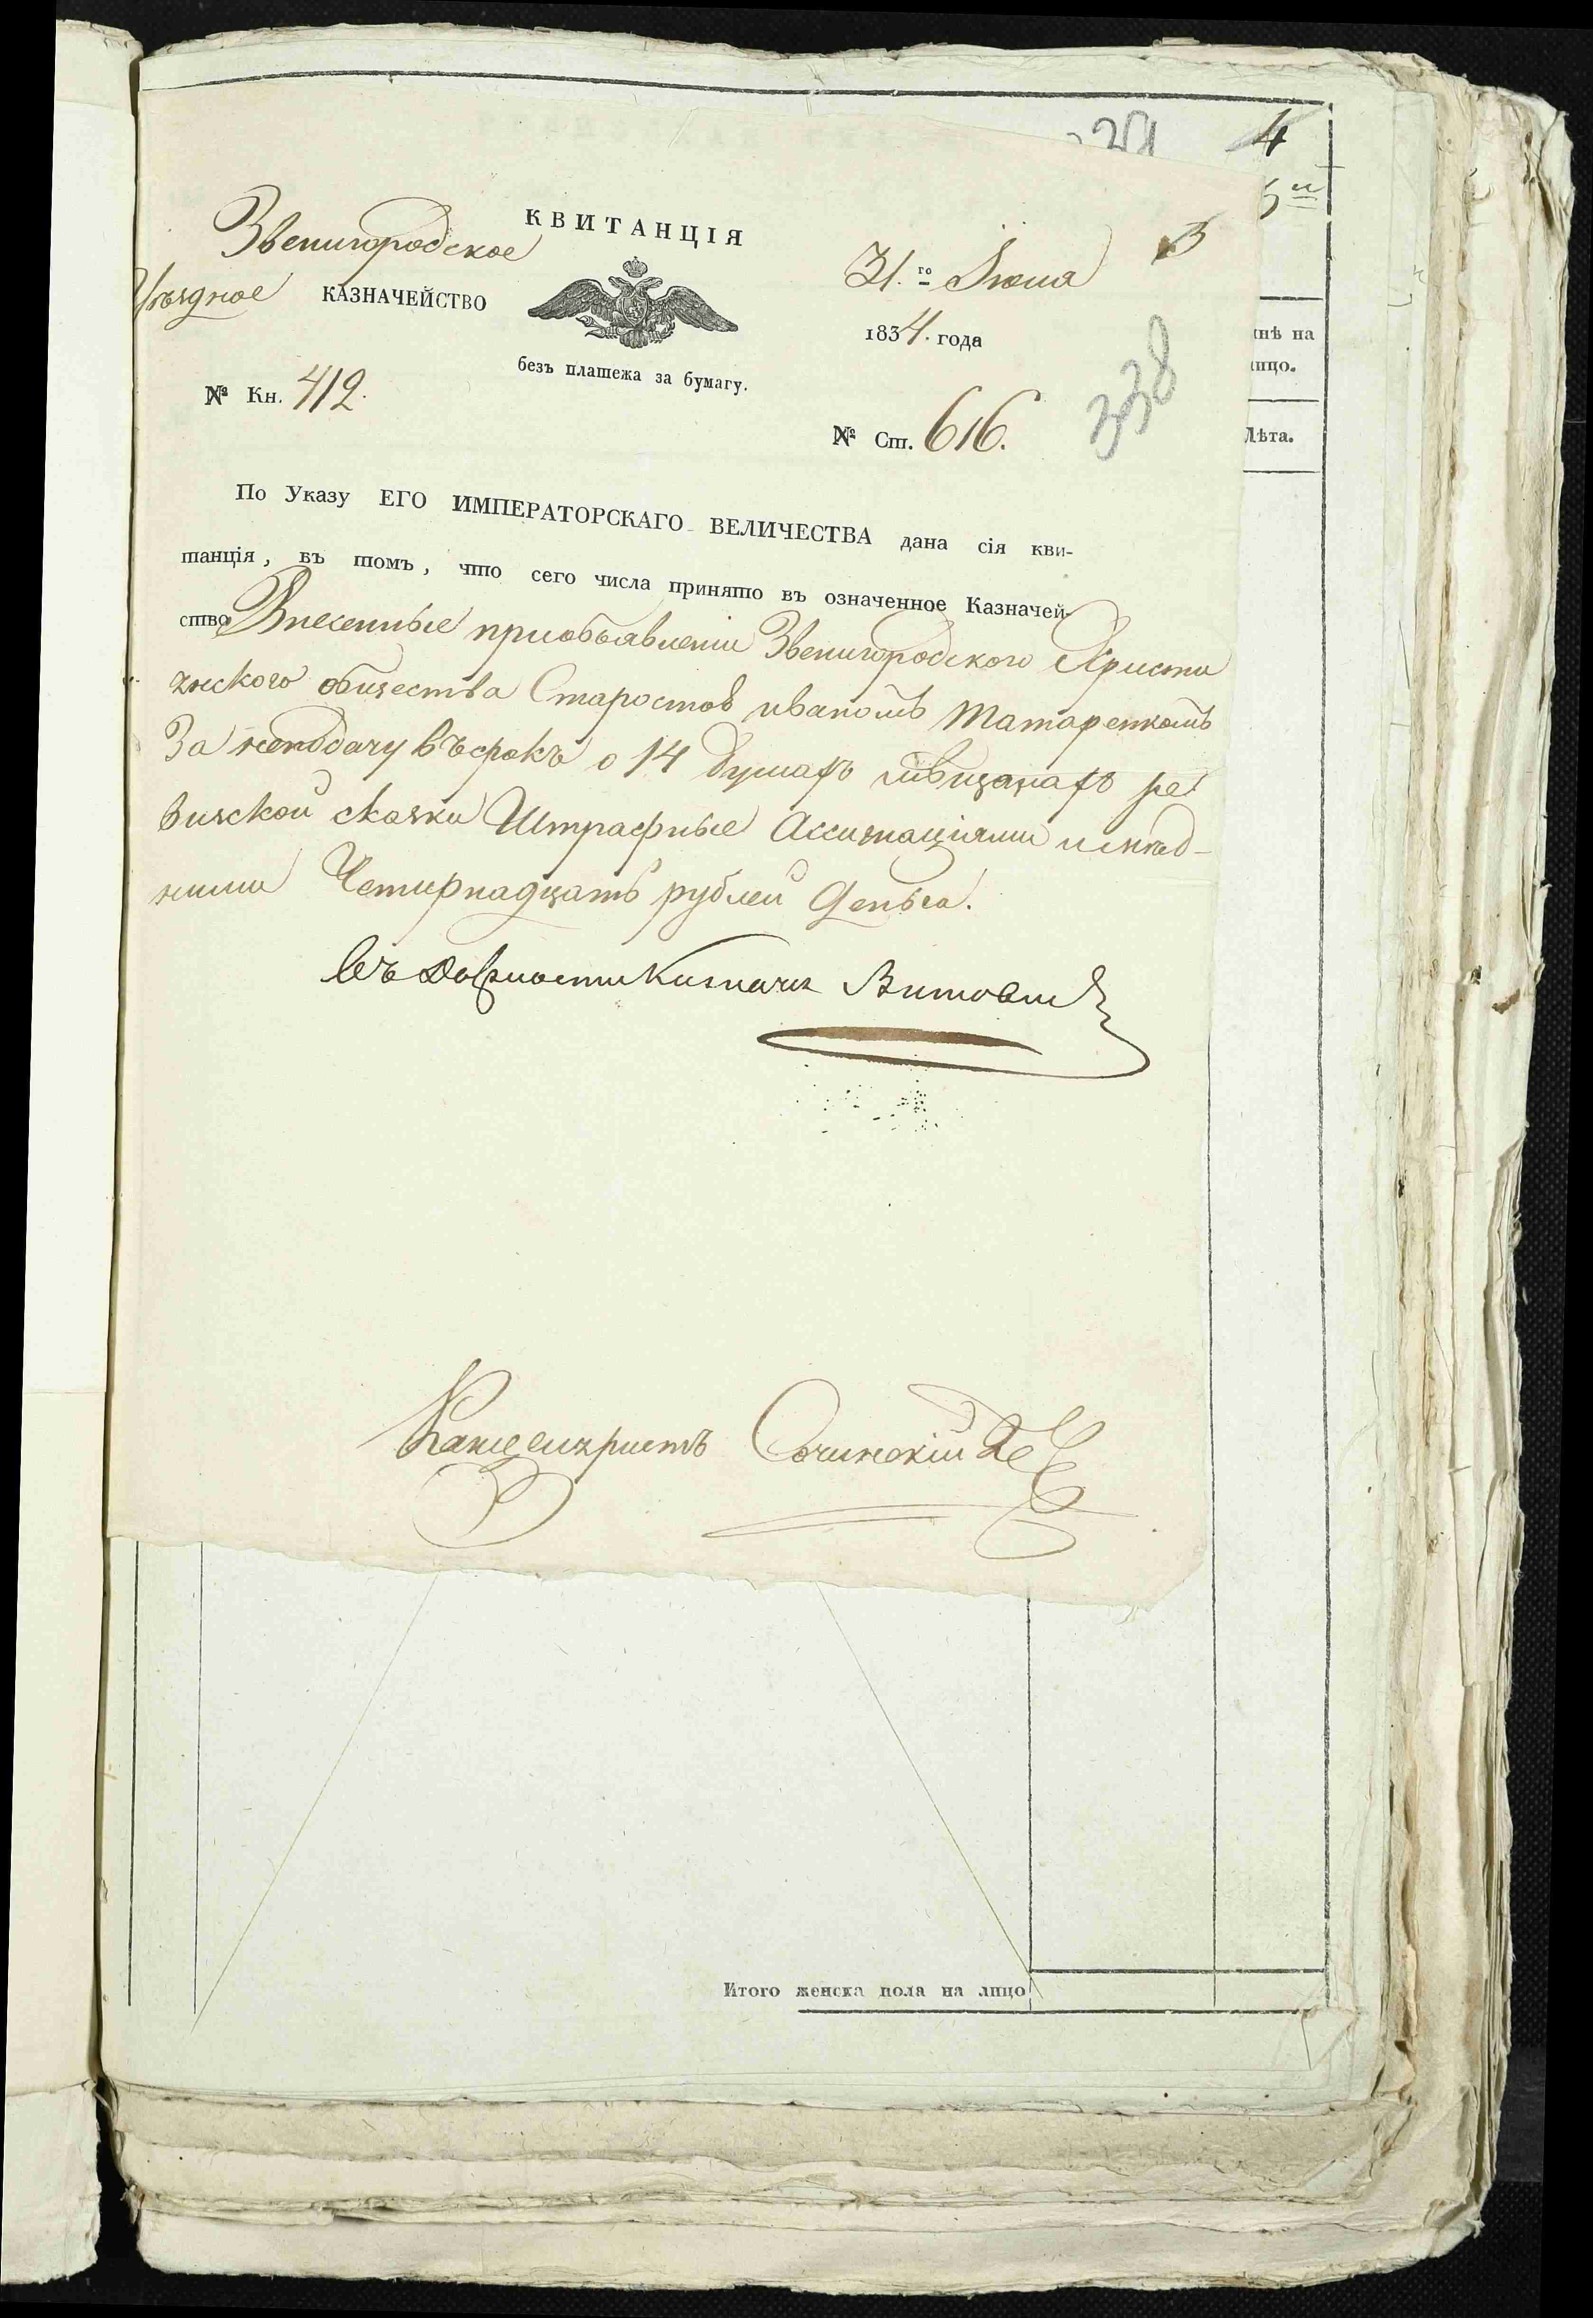 4
КВИТАНЦІЯ
Звенигородское
Уѣздное КАЗНАЧЕЙСТВО
31.го Іюля
1834. года
безъ платежа за бумагу.
№ Кн. 412.
№ Ст. 616.
338
инѣ на
лицо.
Лѣта.
По Указу ЕГО ИМПЕРАТОРСКАГО ВЕЛИЧЕСТВА дана сія кви-
танція, въ томъ, что сего числа принято въ означенное Казначей-
ство Внесенные приобъявленіи Звенигородского Христи
янского общества Старостов иваномъ Татаренкомъ
За неподачу въ срокъ о 14 душахъ мѣщанахъ ре
визской сказки Штрафные Ассигнаціями и мѣд-
ними Четирнадцать рублей Деньга.
Въ Должности Казначея
Канцеляристъ
Итого женска пола на лицо